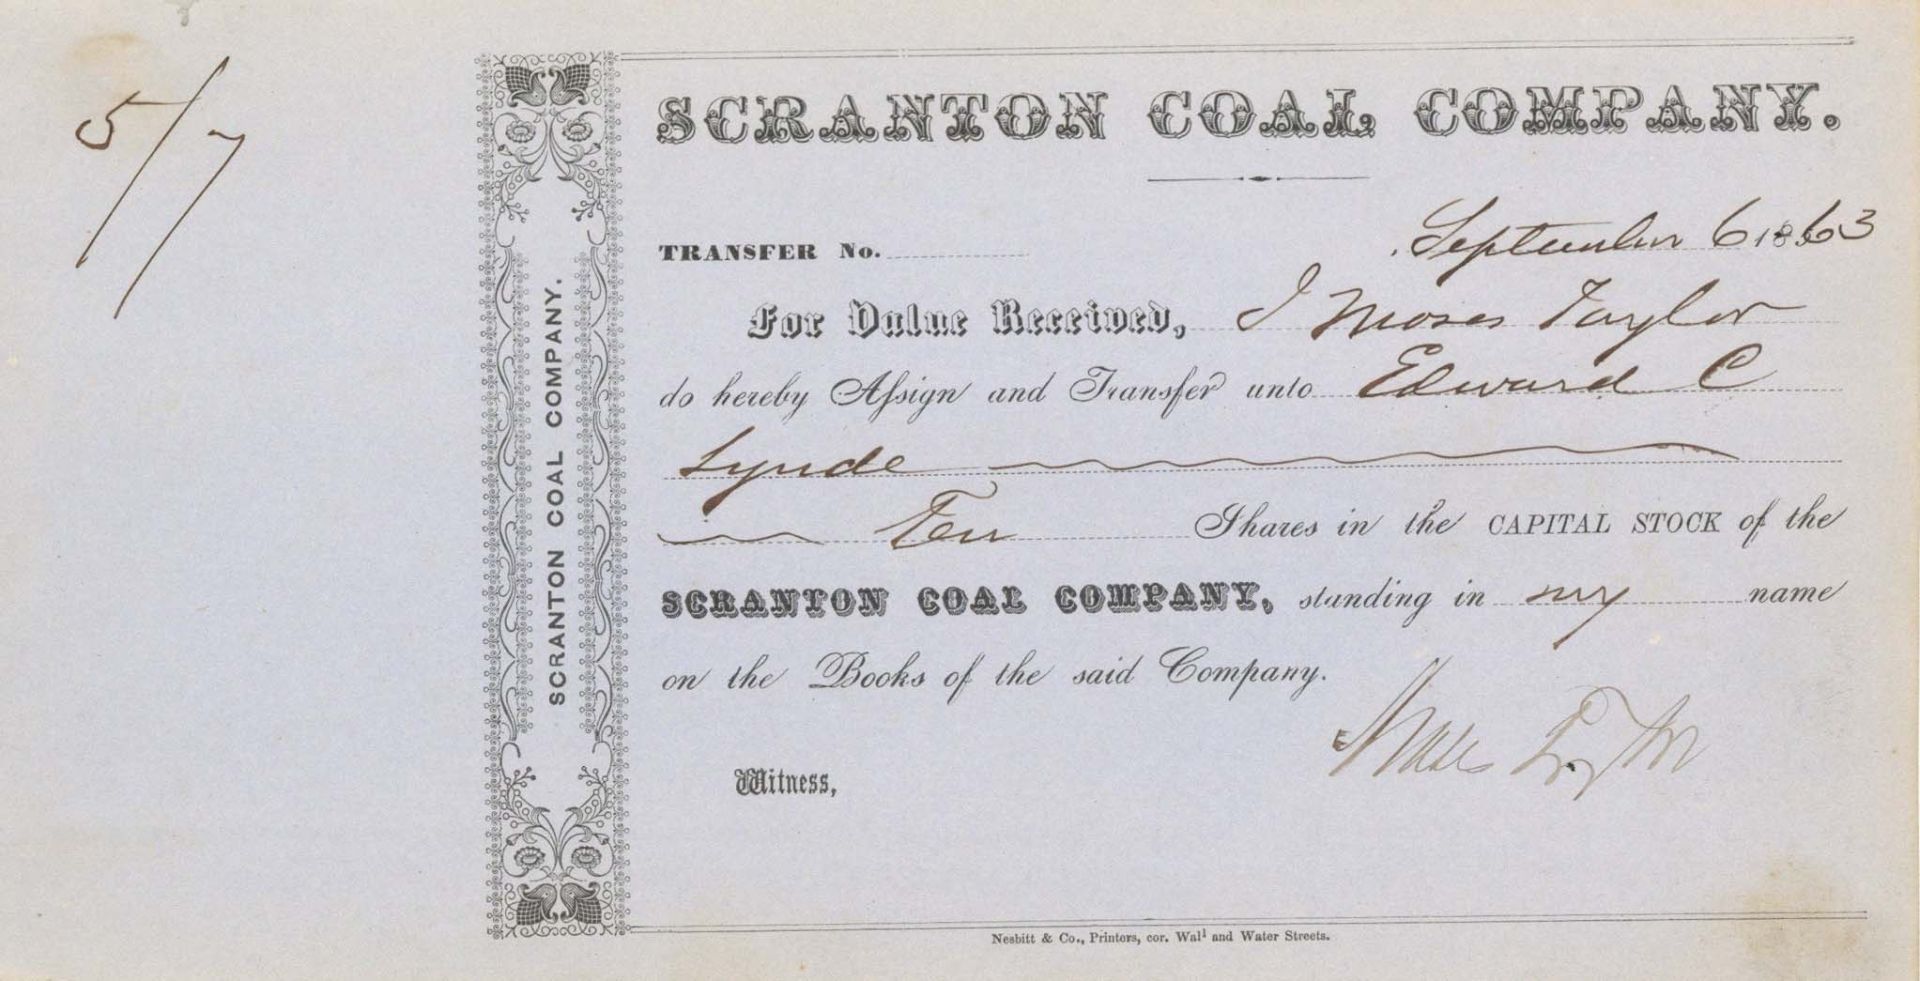 5/7
SCRANTON COAL COMPANY.
SCRANTON COAL COMPANY.
TRANSFER No.
September 6 1863
For Value Received, I Moses Taylor
do hereby Assign and Transfer unto Edward C
Lynde
Ten Shares in the CAPITAL STOCK of the
SCRANTON COAL COMPANY, standing in my name
on the Books of the said Company.
Moses Taylor
Witness,
Nesbitt & Co., Printers, cor. Wall and Water Streets.